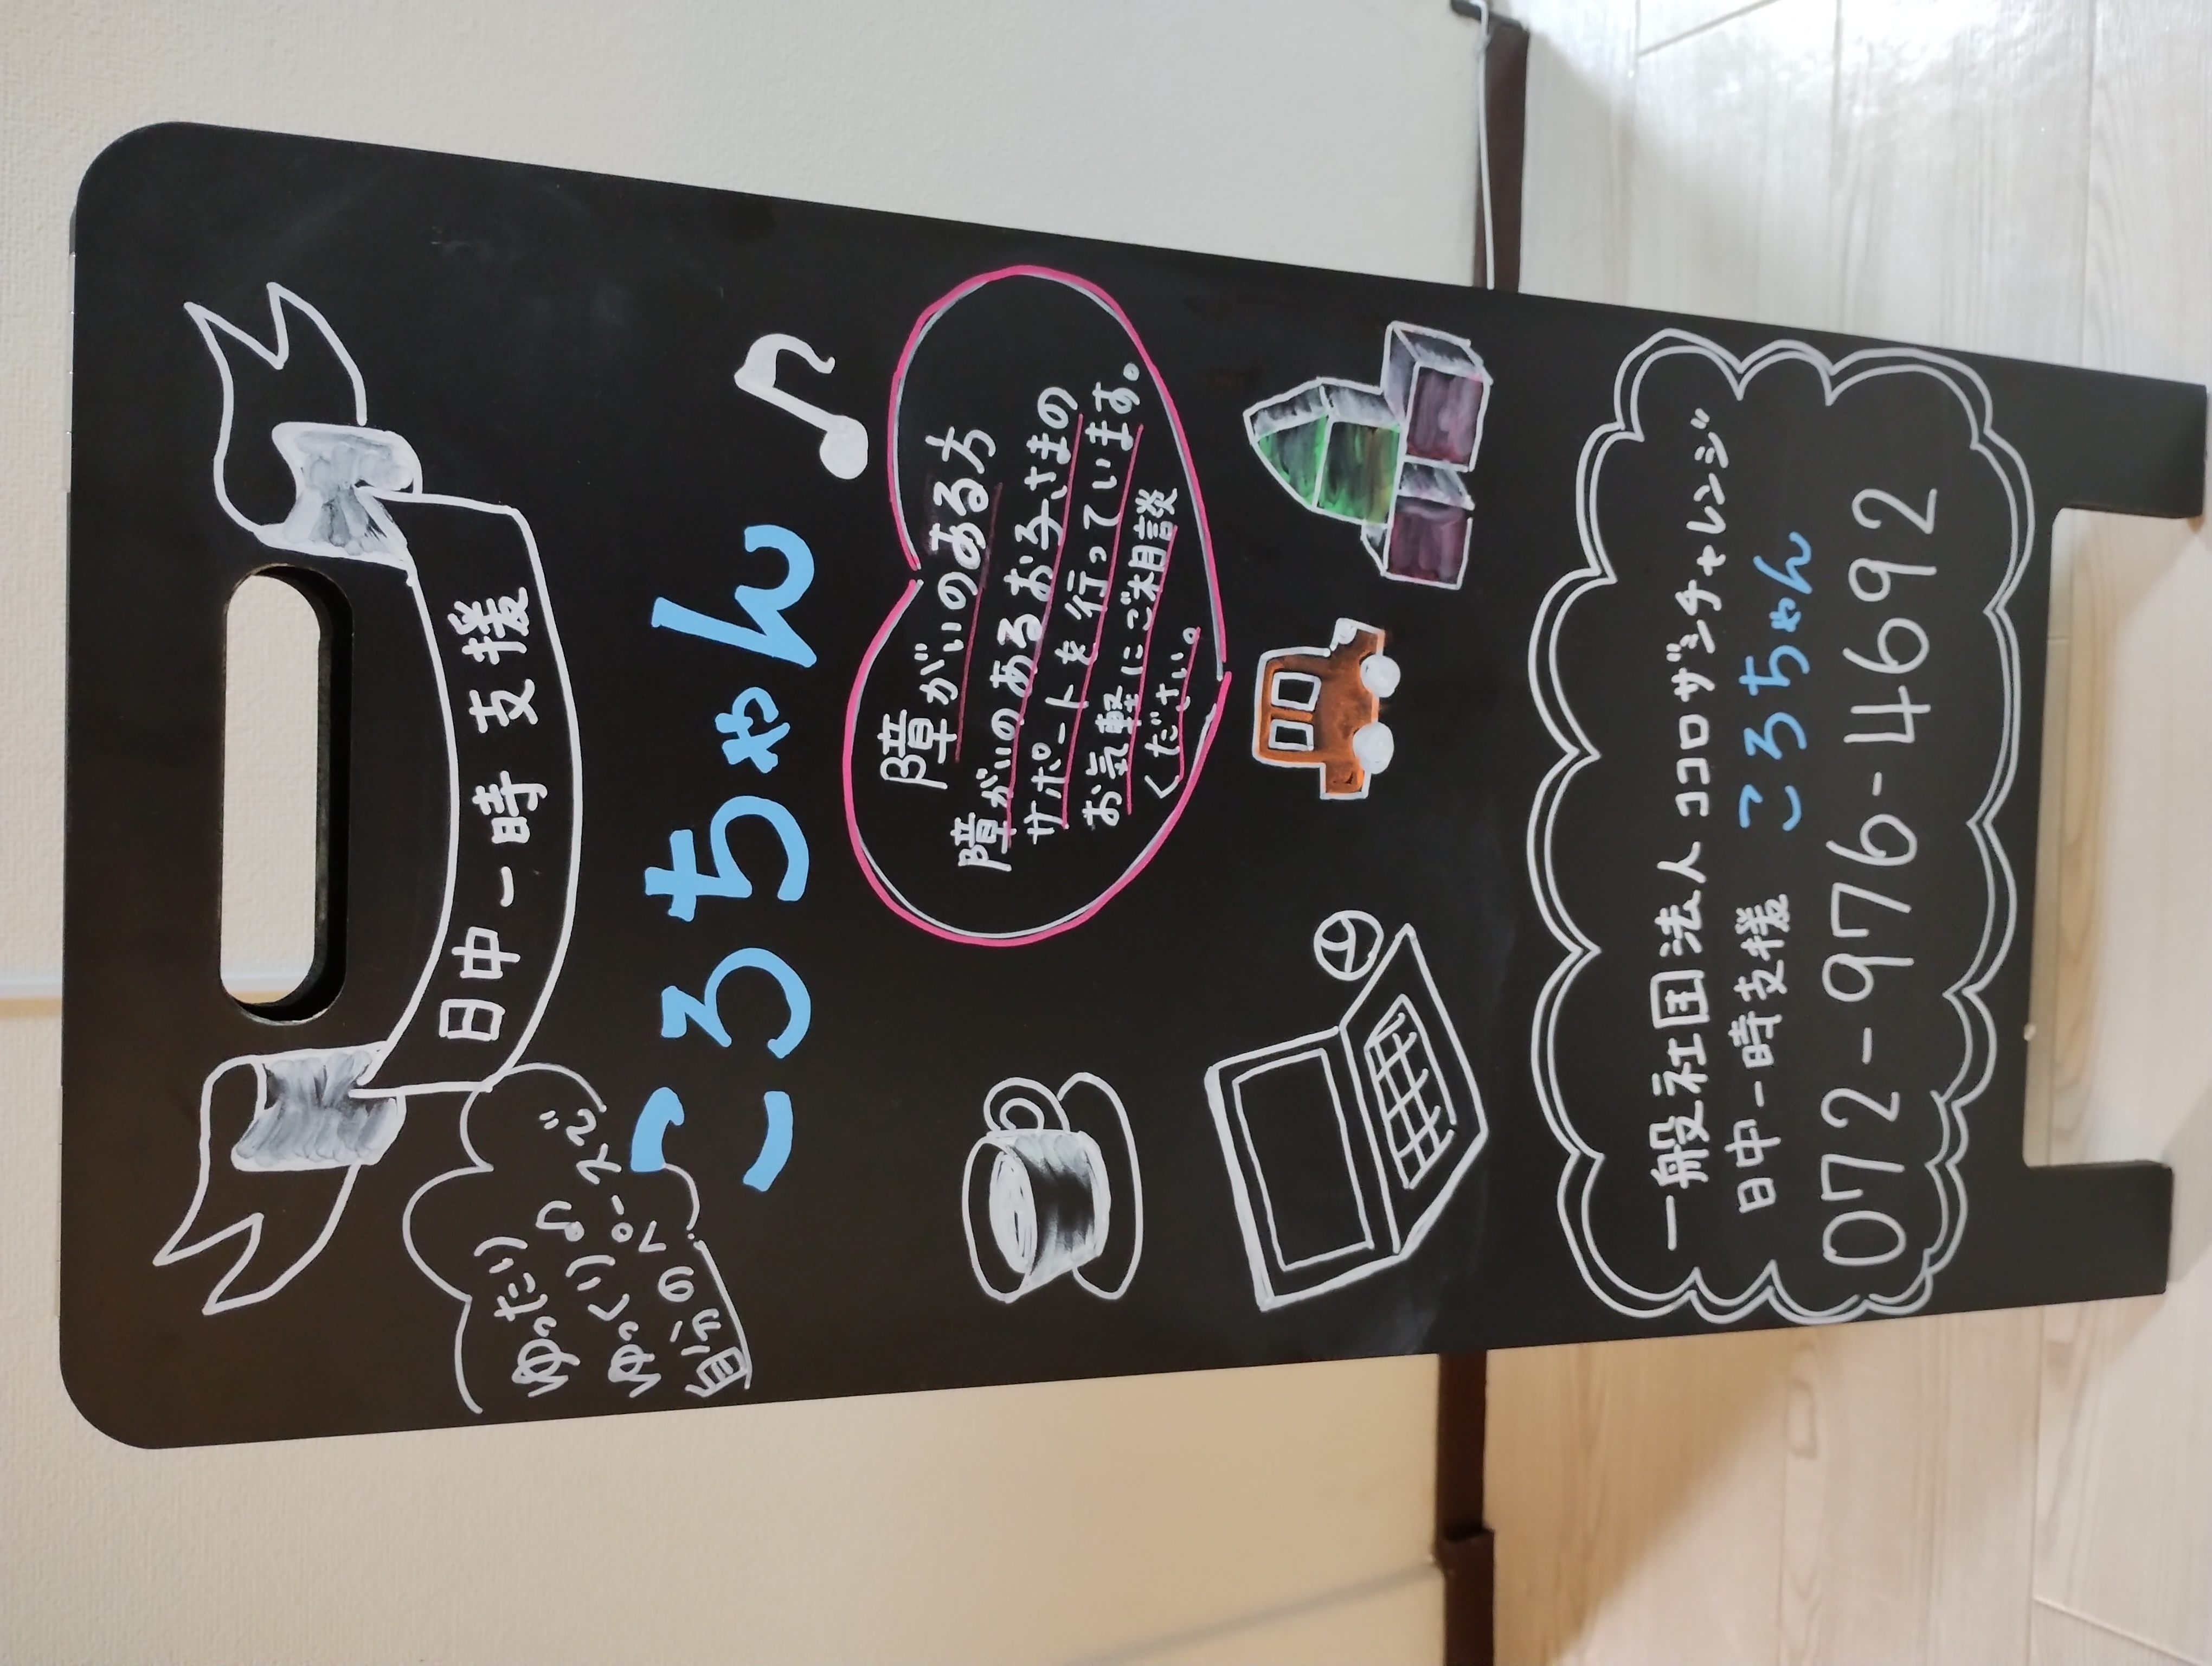 日中一時 支援
ゆったり
ゆっくり♪
自分のペースで
ころちゃん
障がいのある方
障がいのあるお子さまの
サポートを行っています。
お気軽にご相談
ください。
一般社団法人 ココロザシチャレンジ
日中一時支援 ころちゃん
072-976-4692